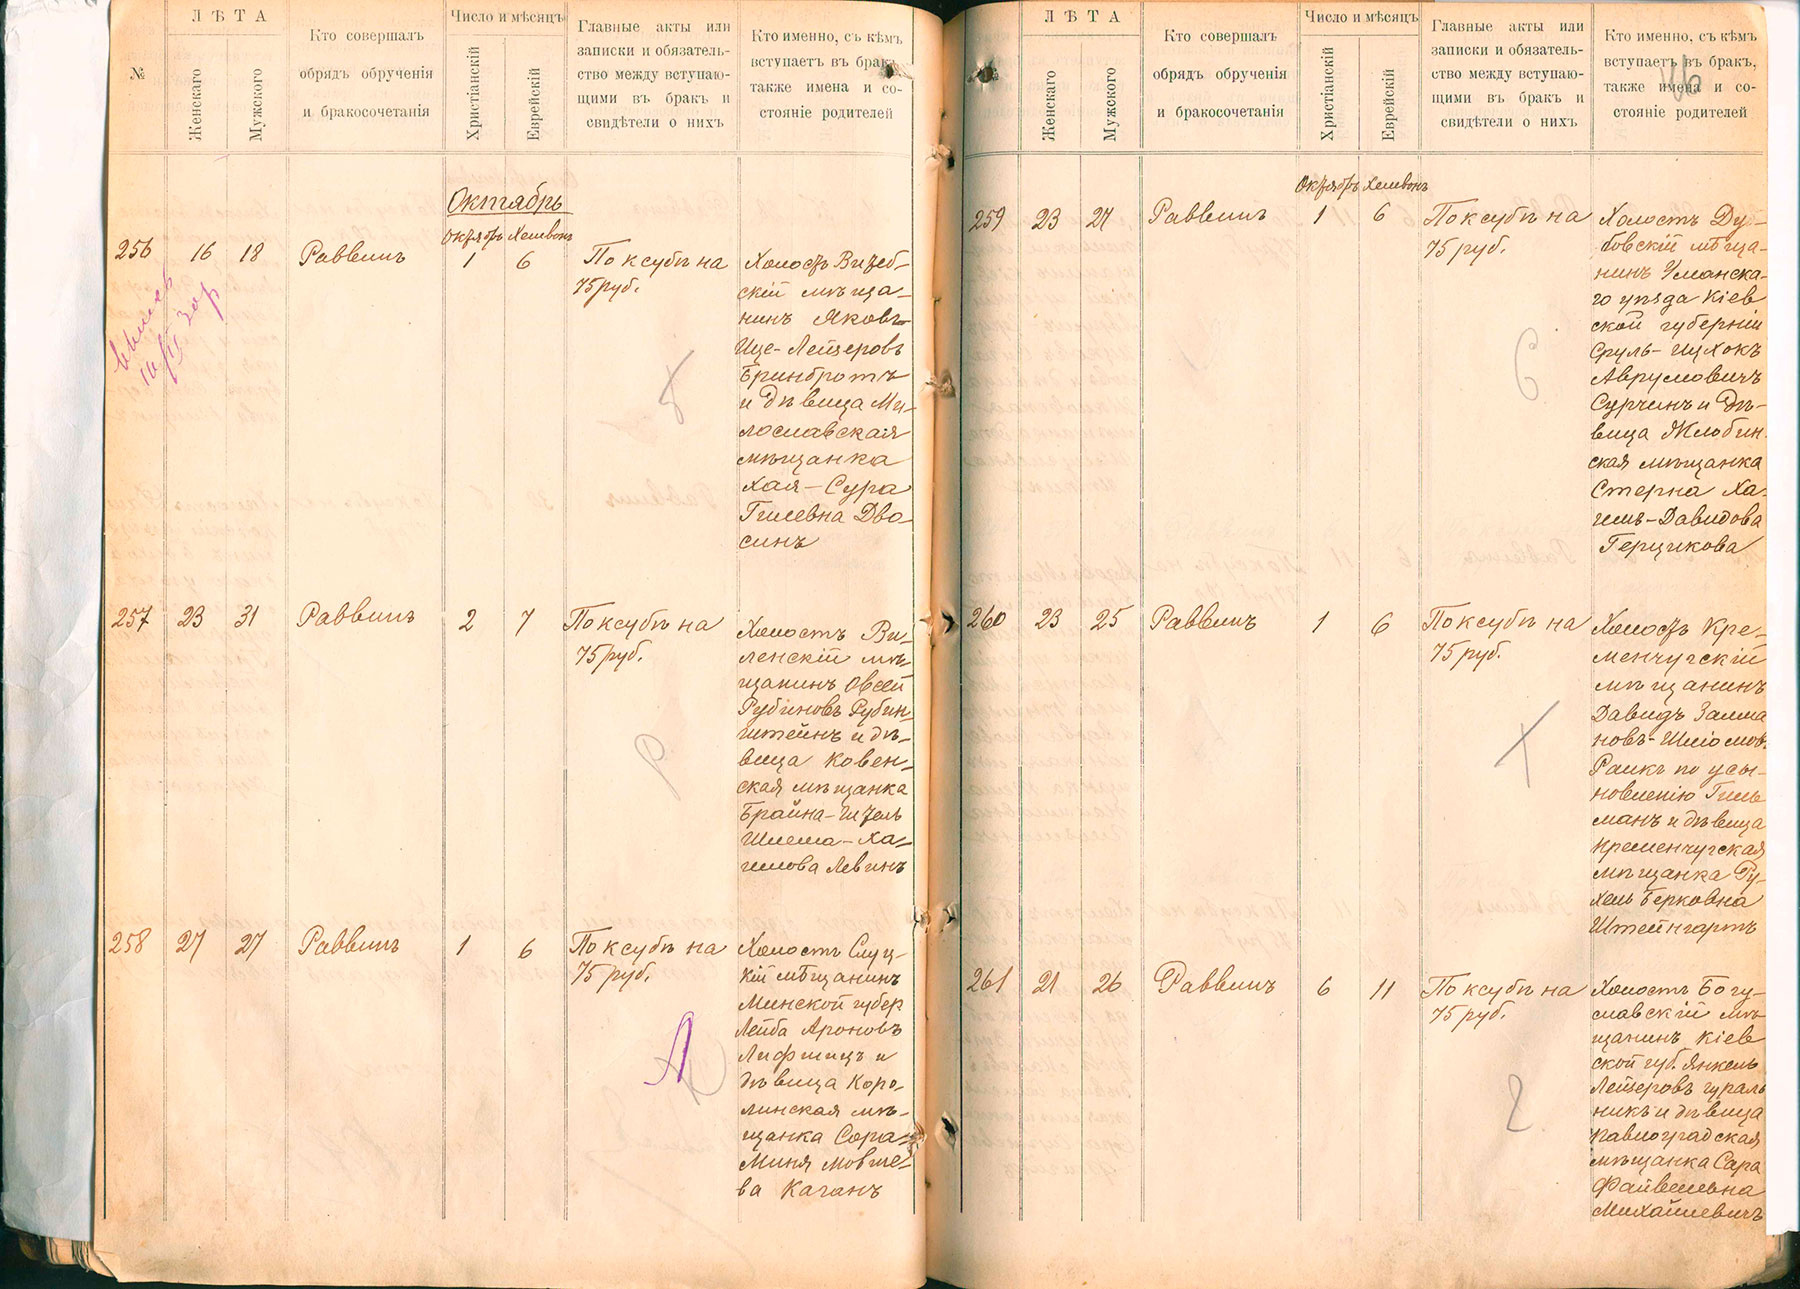 №
ЛѢТА
Женскаго
Мужского
Кто совершалъ
обрядъ обрученія
и бракосочетанія
Число и мѣсяцъ
Христіанскій
Еврейскій
Главные акты или
записки и обязатель-
ство между вступаю-
щими въ бракъ и
свидѣтели о нихъ
Кто именно, съ кѣмъ
вступаетъ въ бракъ
также имена и со-
стояніе родителей
Октябрь
Октябрь Хешвонъ
256 16 18 Раввинъ 1 6 По ксубѣ на
75 руб.
Холостъ Витеб-
скій мѣща-
нинъ Яковъ-
Ице-Лейзеровъ
Бринбротъ
и дѣвица Ми-
лославская
мѣщанка
Хая-Сура
Гилевна Дво-
синъ
257 23 31 Раввинъ 2 7 По ксубѣ на
75 руб.
Холостъ Ви-
ленскій мѣ-
щанинъ Овсей
Рубиновъ Рубин-
штейнъ и дѣ-
вица Ковен-
ская мѣщанка
Брайна-Гитель
Шлема-Ха-
имова Левинъ
258 27 27 Раввинъ 1 6 По ксубѣ на
75 руб.
Холостъ Слуц-
кій мѣщанинъ
Минской губер
Лейба Ароновъ
Лифшицъ и
дѣвица Коро-
линская мѣ-
щанка Сора-
Миня Мовше-
ва Каганъ
А
ЛѢТА
Женскаго
Мужского
Кто совершалъ
обрядъ обрученія
и бракосочетанія
Число и мѣсяцъ
Христіанскій
Еврейскій
Главные акты или
записки и обязатель-
ство между вступаю-
щими въ бракъ и
свидѣтели о нихъ
Кто именно, съ кѣмъ
вступаетъ въ бракъ,
также имена и со-
стояніе родителей
Октябрь Хешвонъ
259 23 27 Раввинъ 1 6 По ксубѣ на
75 руб.
Холостъ Ду-
бовскій мѣща-
нинъ Уманска-
го уѣзда Кіев
ской губерніи
Сруль-Ицхокъ
Аврумовичъ
Сурчинъ и дѣ-
вица Жлобин-
ская мѣщанка
Стерна Ха-
имъ-Давидова
Герчикова
260 23 25 Раввинъ 1 6 По ксубѣ на
75 руб.
Холостъ Кре-
менчугскій
мѣщанинъ
Давидъ Залма
новъ-Шломовъ
по усы-
новленію Гиль
манъ и дѣвица
Кременчугская
мѣщанка Ру-
хель Берковна
Штейнгартъ
261 21 26 Раввинъ 6 11 По ксубѣ на
75 руб.
Холостъ Богу-
славскій мѣ-
щанинъ Кіев
ской губ. Янкель
Лейзеровъ Гураль
никъ и дѣвица
Павлоградская
мѣщанка Сара
Файвелевна
Михайлевичъ